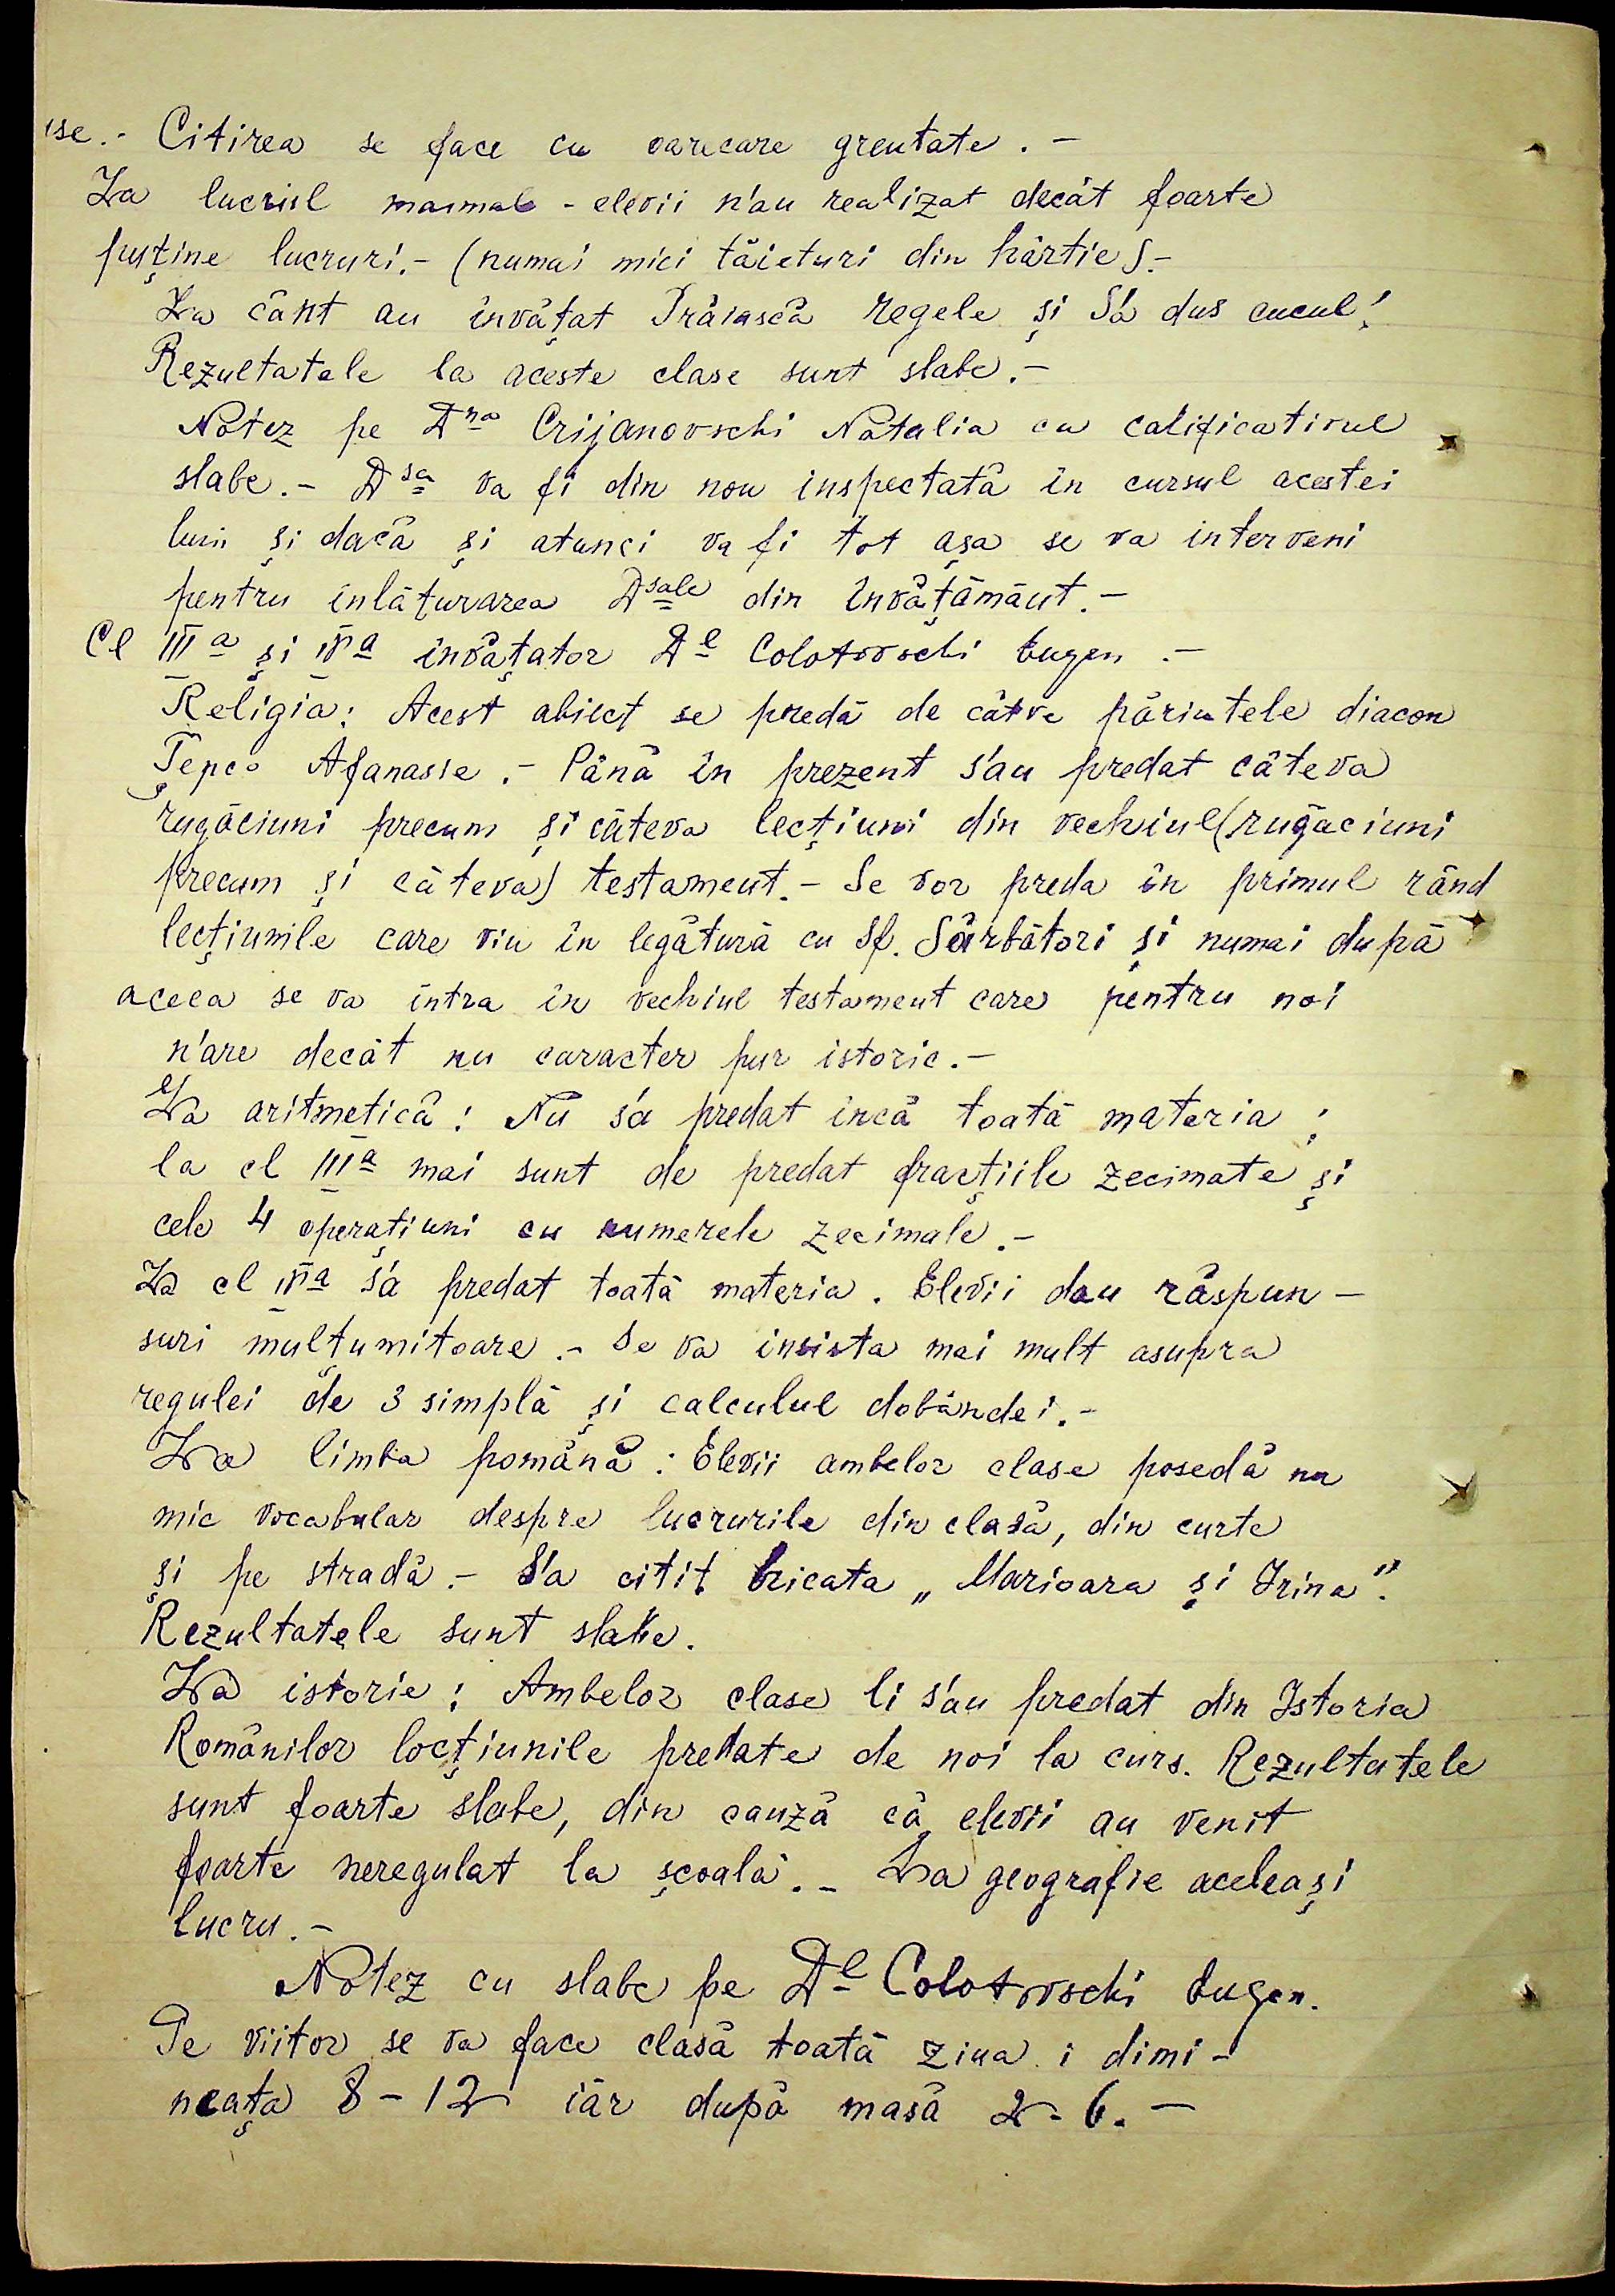 se.- Citirea se face cu oarecare greutate. -
La lucrul manual - elevii n'au realizat decât foarte
puține lucruri.- (numai mici tăieturi din hârtie).-
La cânt au învățat Trăiască regele și S'a dus cucul!
Rezultatele la aceste clase sunt slabe.-
Notez pe Dna Crijanovschi Natalia cu calificativul
slabe.- Dsa va fi din nou inspectată în cursul acestei
luni și dacă și atunci va fi tot așa se va interveni
pentru înlăturarea Dsale din învățământ.-
Cl IIIa și IVa învățator Dl Colotovschi Eugen.-
Religia: Acest obiect se predă de către părintele diacon
Țepco Afanasie.- Până în prezent s'au predat câteva
rugăciuni precum și câteva lecțiuni din vechiul (rugăciuni
precum și câteva) testament.- Se vor preda în primul rând
lecțiunile care vin în legătură cu Sf. Sărbători și numai după
aceea se va intra în vechiul testament care pentru noi
n'are decât nu caracter pur istoric.-
La aritmetică: Nu s'a predat încă toată materia;
la cl IIIa mai sunt de predat fracțiile zecimate și
cele 4 operațiuni cu numerele zecimale.-
La cl IVa s'a predat toată materia. Elevii dau răspun-
suri mulțumitoare.- Se va insista mai mult asupra
regulei de 3 simplă și calculul dobândei.-
La limba română: Elevii ambelor clase posedă un
mic vocabular despre lucrurile din clasă, din curte
și pe stradă.- S'a citit bucata „Marioara și Irina".
Rezultatele sunt slabe.
La istorie: Ambelor clase li s'au predat din Istoria
Românilor locțiunile predate de noi la curs. Rezultatele
sunt foarte slabe, din cauză că elevii au venit
foarte neregulat la școală.- La geografie aceleași
lucru.-
Notez cu slabe pe Dl Colotovschi Eugen.
Pe viitor se va face clasă toată ziua i dimi-
neața 8-12 iar după masă 2-6.-